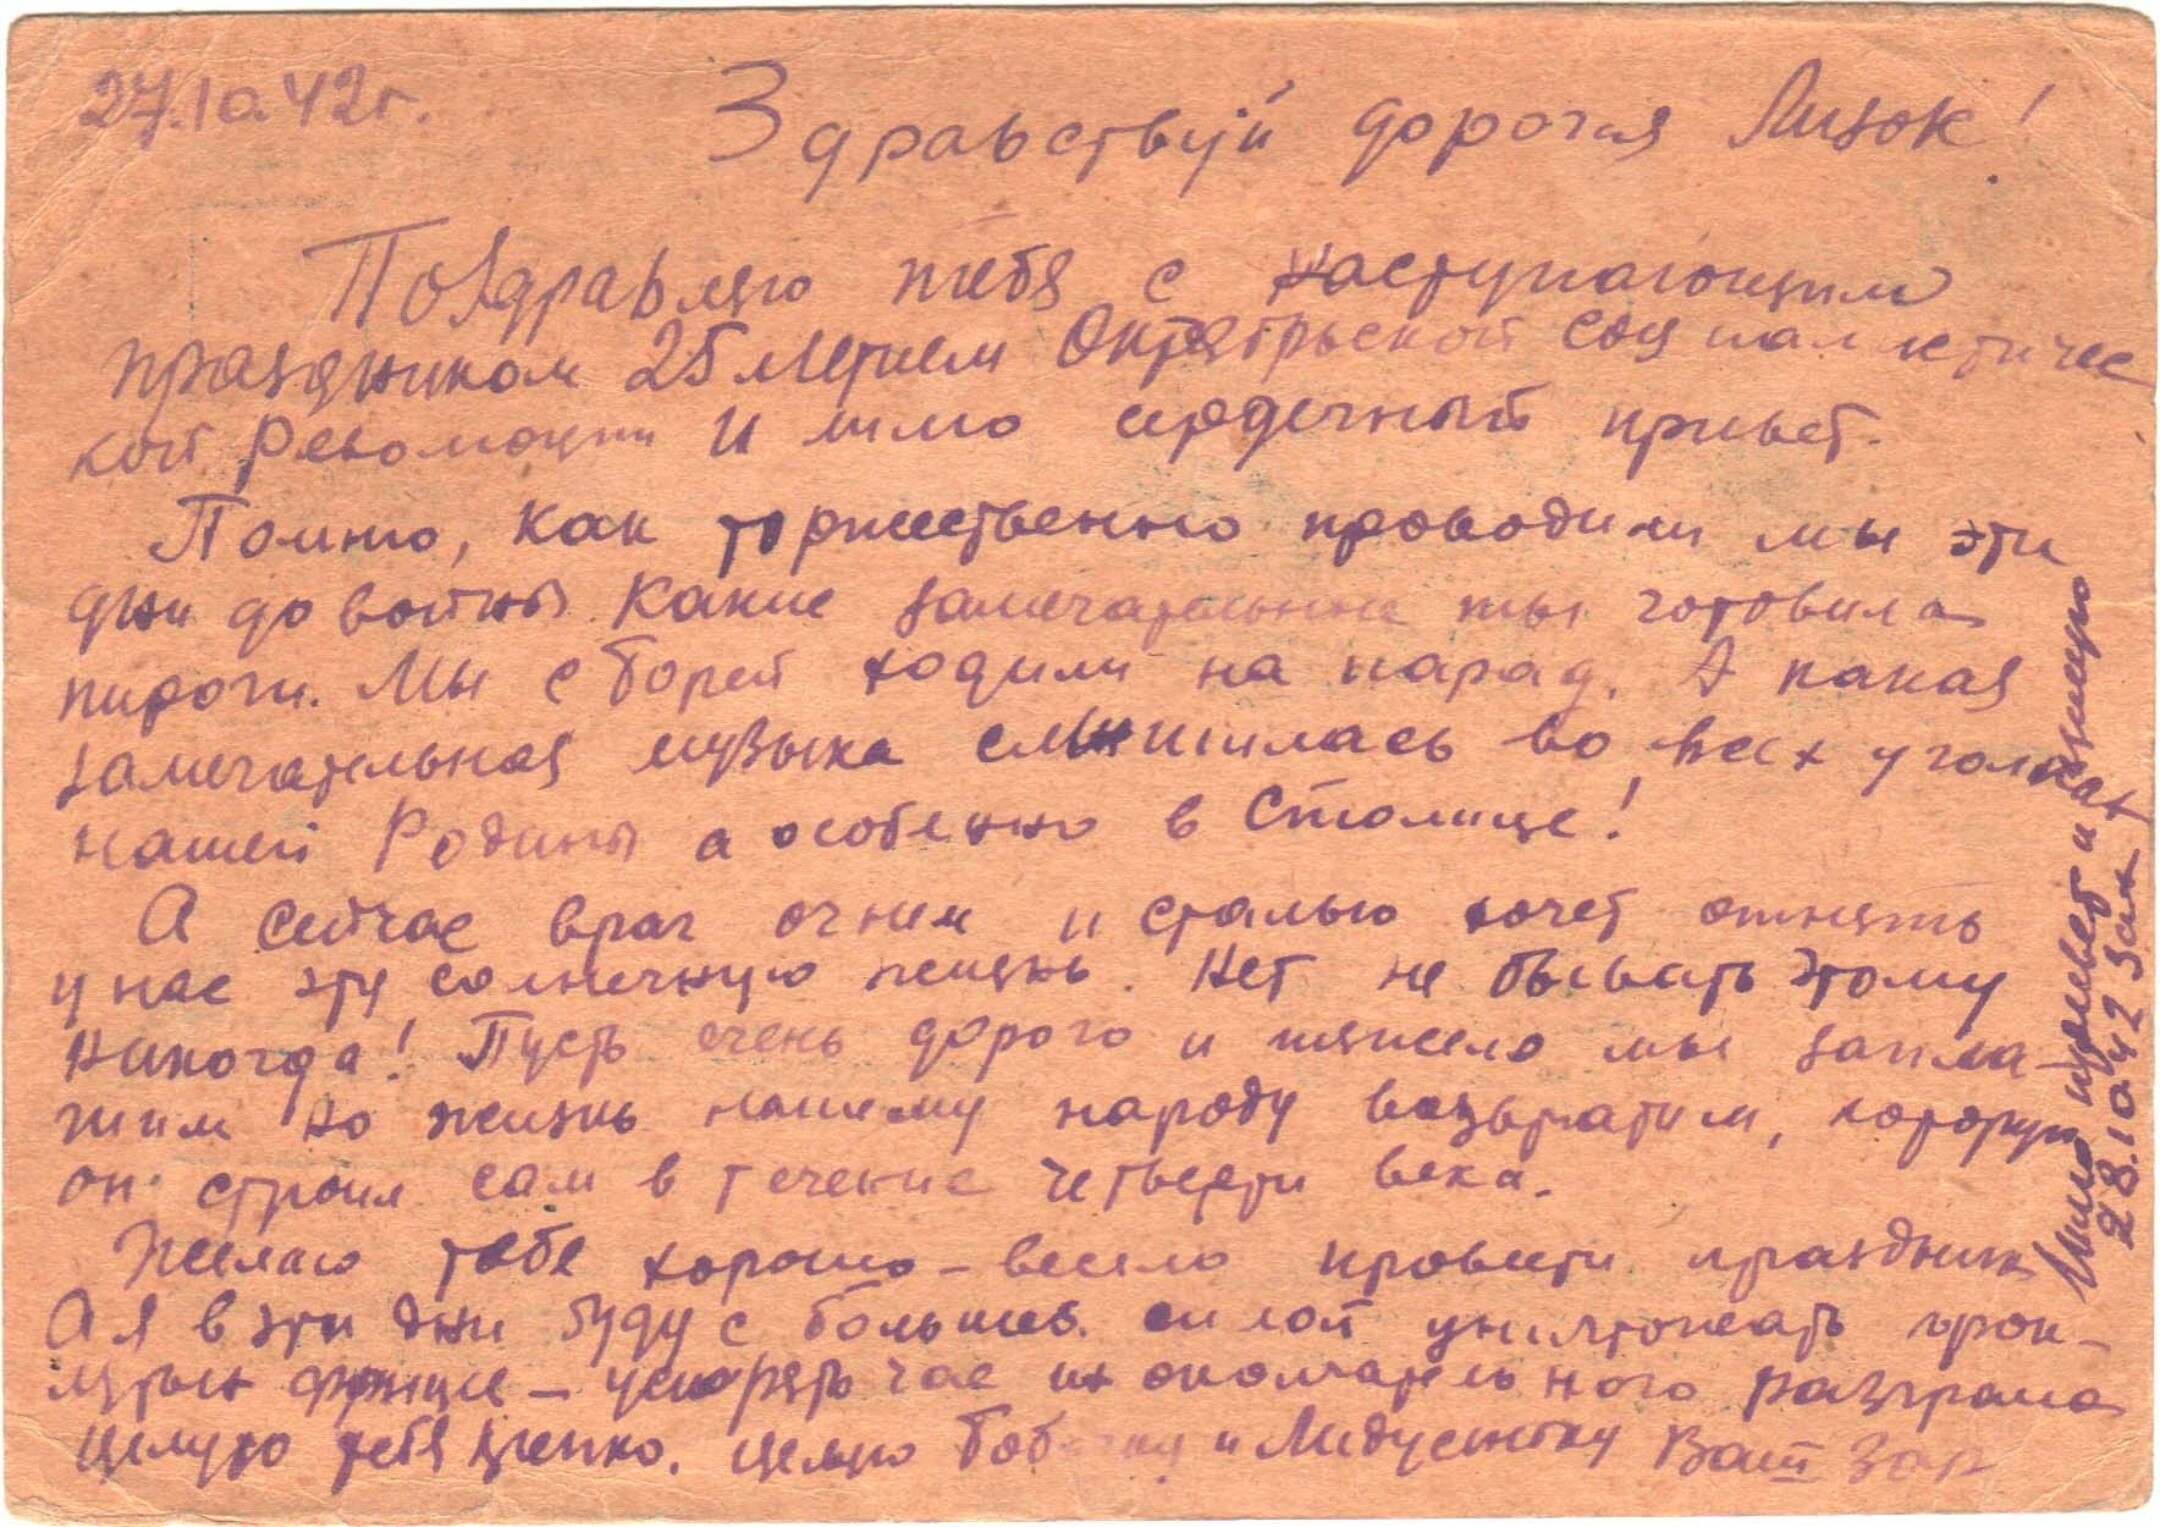 27.10.42г.
Здравствуй дорогая Лизок!
Поздравляю тебя с наступающим
праздником 25 летием Октябрьской социалистичес
кой Революции И шлю сердечный привет.
Помню, как торжественно проводили мы эти
дни до войны. Какие замечательные ты готовила
пироги. Мы с Борей ходили на парад. А какая
замечательная музыка слышилась во всех уголках
нашей Родины а особенно в Столице!
А сейчас враг огнем и сталью хочет отнять
у нас эту солнечную жизнь. Нет не бывать этому
никогда! Пусть очень дорого и тяжело мы запла-
тим но жизнь нашему народу возвратим, которую
он строил сам в течение четверти века.
Желаю тебе хорошо-весело провести праздник
А я в эти дни буду с большей силой уничтожать прок-
лятых фрицев – ускорять час их окончательного разгрома
Целую тебя крепко. Целую и Лидусеньку Ваш
Шлю привет и
28.10.42